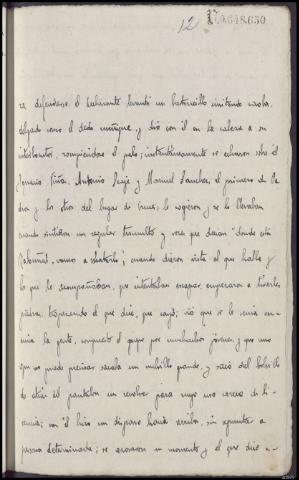 12
0.648.650
ra defenderse. El declarante levantó un bastoncillo imitando caoba,
delgado como el dedo meñique, y dió con él en la cabeza a su
interlocutor, rompiéndose el palo; instantáneamente se echaron sobre él
Jenaro Piña, Antonio y Manuel Sanchez, el primero de
y los otros del lugar de Cruces, le cogieron y se lo llevaban
cuando sintieron un regular tumulto y voces que decían "donde está
Cabañas, vamos a matarlo"; cuando dieron vista al que habla y
a los que le acompañaban, que intentaban escapar, empezaron a tirarles
piedras, tropezando el que dice, que cayó; vió que se le venía en-
cima la gente, compuesto el grupo por muchachos jóvenes, y que uno
que no puede precisar sacaba un cuchillo grande, y sacó del bolsillo
de atrás del pantalón un revolver para cuyo uso carece de li-
cencia; con él hizo un disparo hacia arriba, sin apuntar a
persona determinada; se pararon un momento y el que dice a-